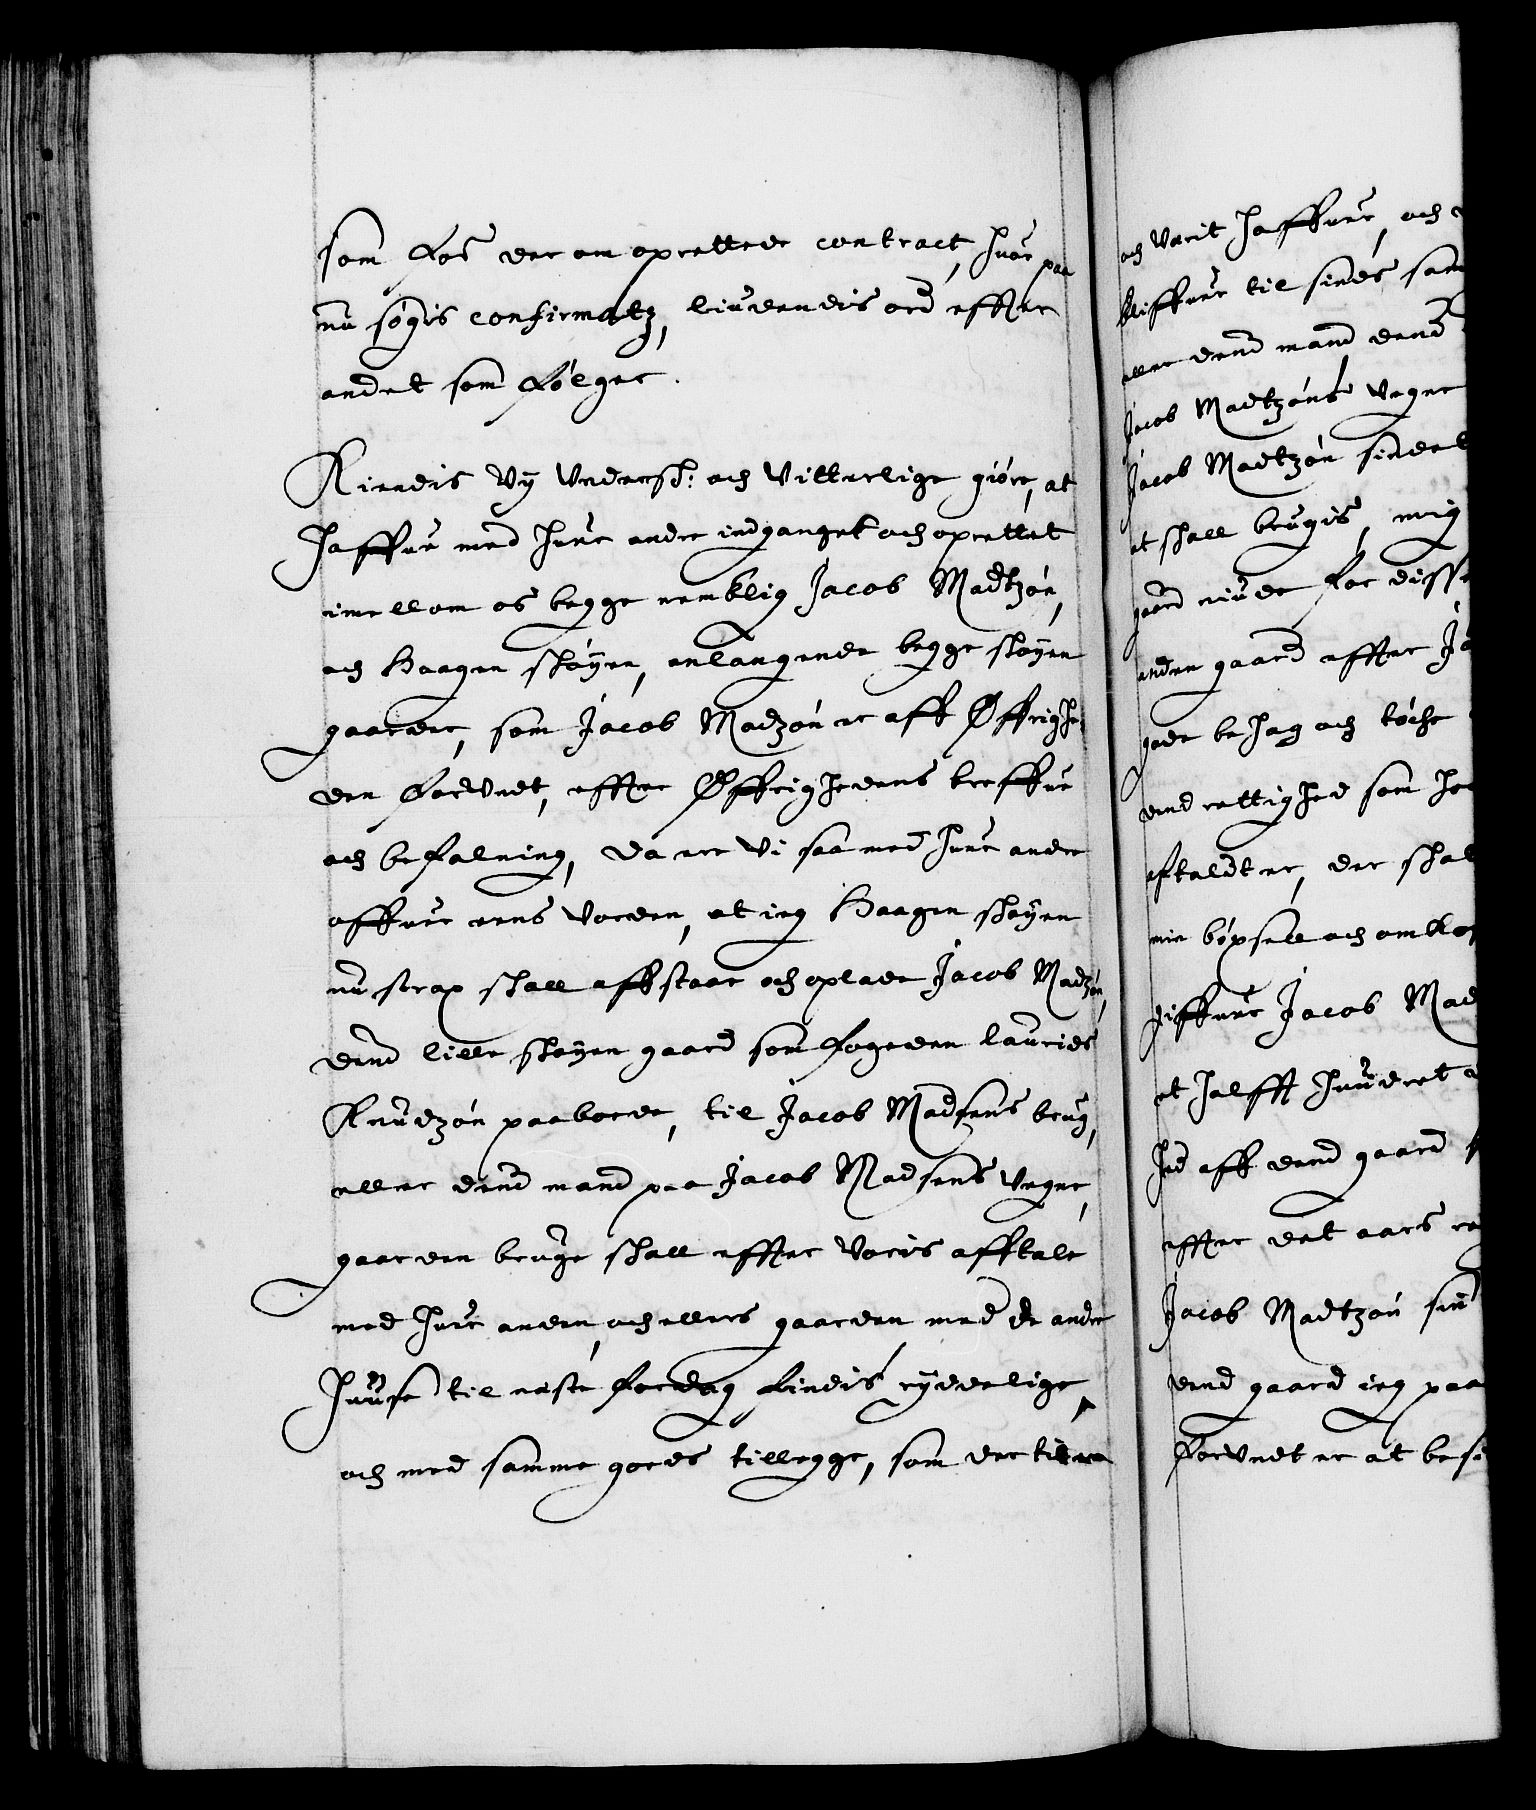 som Løs der om oprettede contract, huor paa
nu søgis confirmatz, liudendis ord effter
andet som følger.
Kiendis Vy Underss: och Vitterlige giöre, at
haffue med huer andre indganget och oprettet
imellom os begge nemblig Jacob Madtzón,
och Haagen skóyen, anlangende begge skóyen
gaarder, som Jacob Madzón er aff Øffrighe,
den forundt, effter Øffrighedens breffue
och befalning, da ere Vi saa med huer andre
offuer eens vorden, at ieg Haagen skóyen
nu strax skall affstaae och oplade Jacob Madzón,
dend lille skóyen gaard som fogeden lauridS
Knudzón paaboede, til Jacob Madsens brug,
eller dend mand paa Jacob Madsens Vegne,
gaarden bruge skall effter Voris afftale
med huer anden, och ellers gaarden med de andre
huuse til neste fardag findis rÿddelige,
och med samme goeds tillegge, som der til er
och Varit haffuer, och
bliffuer til sinds sam
eller dend mand dend
Jacob Madtzóns Vegne
Jacob Madtzón sindet
et skall brugis, mig
gaard niude for diss
anden gaard effter Ja
gode behag och tóche
dend rettighed som her
aftaldt er, der skal
min bóxsell och omkos
giffuer Jacob Mad
et halfft hundret
hed aff dend gaard
effter det aars
Jacob Madtzón sin
dend gaard ieg paa
forundt er at besi